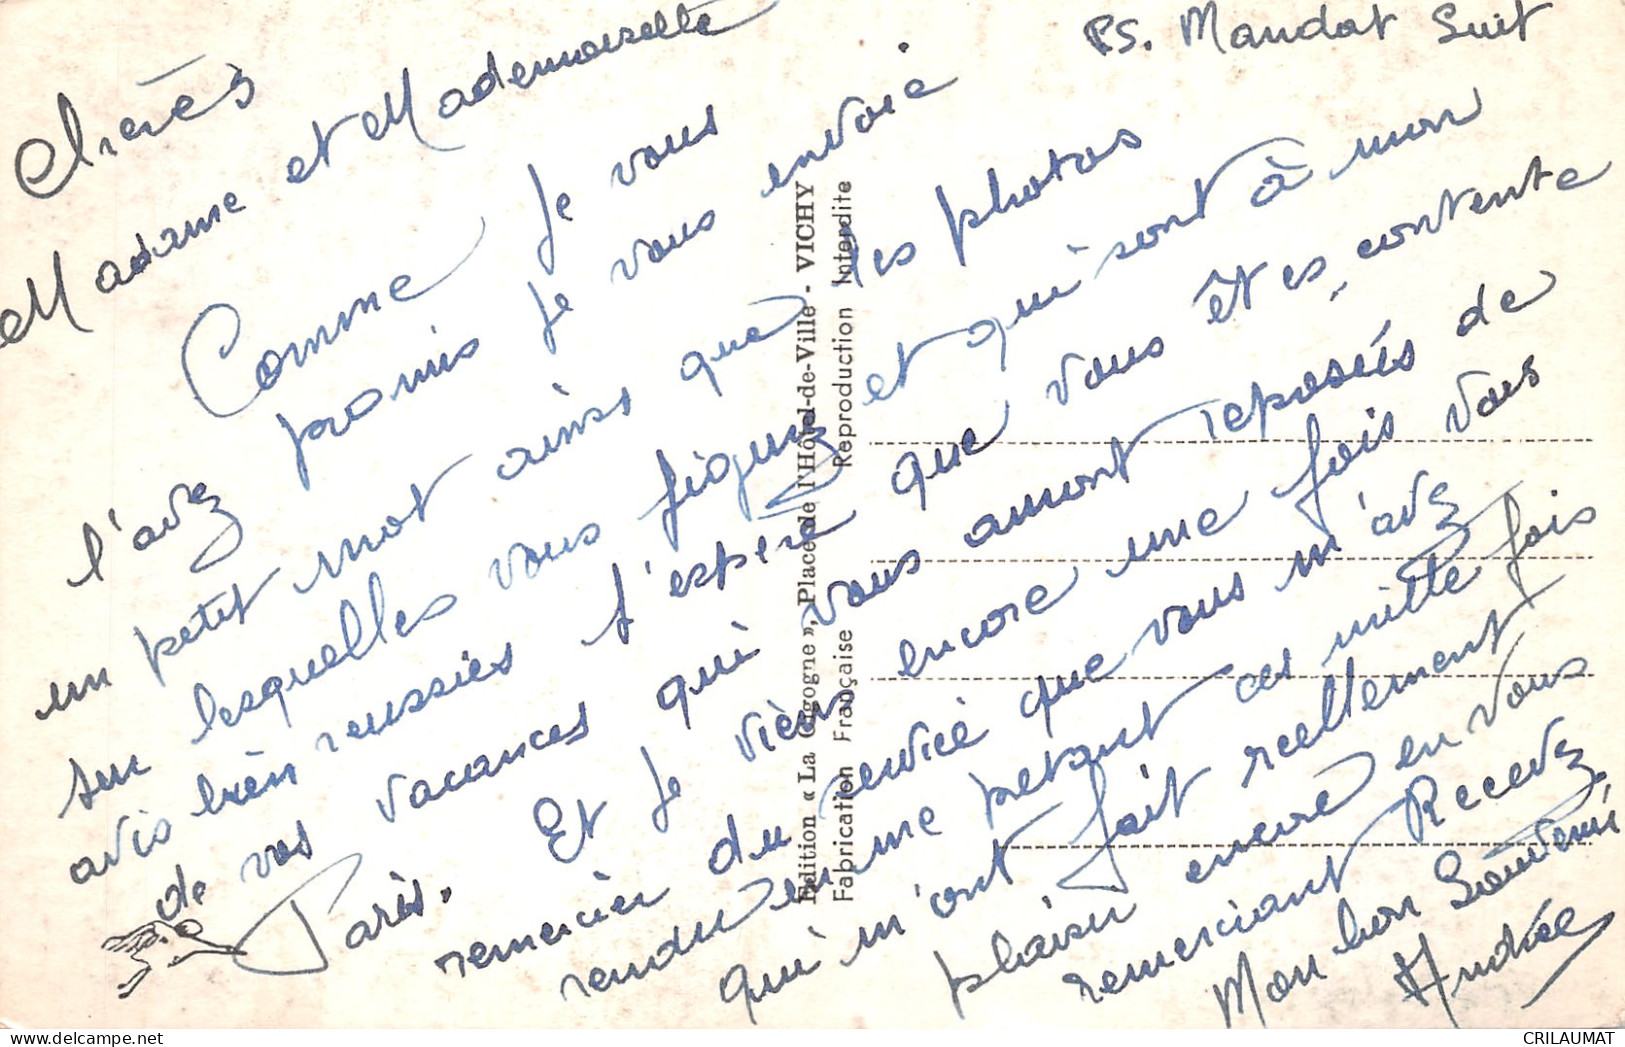 PS. Mandat Suit
Chères
Madame et Mademoiselle
Comme je vous
l'avez promis je vous envoie
un petit mot ainsi que des photos
sur lesquelles vous figurez et qui sont à mon
avis bien reussies J'espere que vous êtes contente
de vos vacances qui vous auront reposées de
Paris. Et je viens encore une fois vous
remercier du service que vous m'avez
rendu en me pretant ces mille fois
qui m'ont fait reellement
plaisir encore en vous
remerciant Recevez
Mon bon Souvenir
Andrée
Edition « La Cigogne », Place de l'Hôtel-de-Ville - VICHY
Fabrication Française Reproduction Interdite
CRILAUMAT